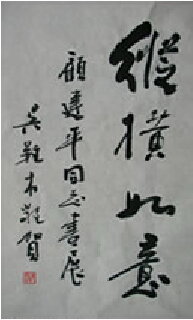 縱橫如意
顧建平同志書展
吳木敬賀